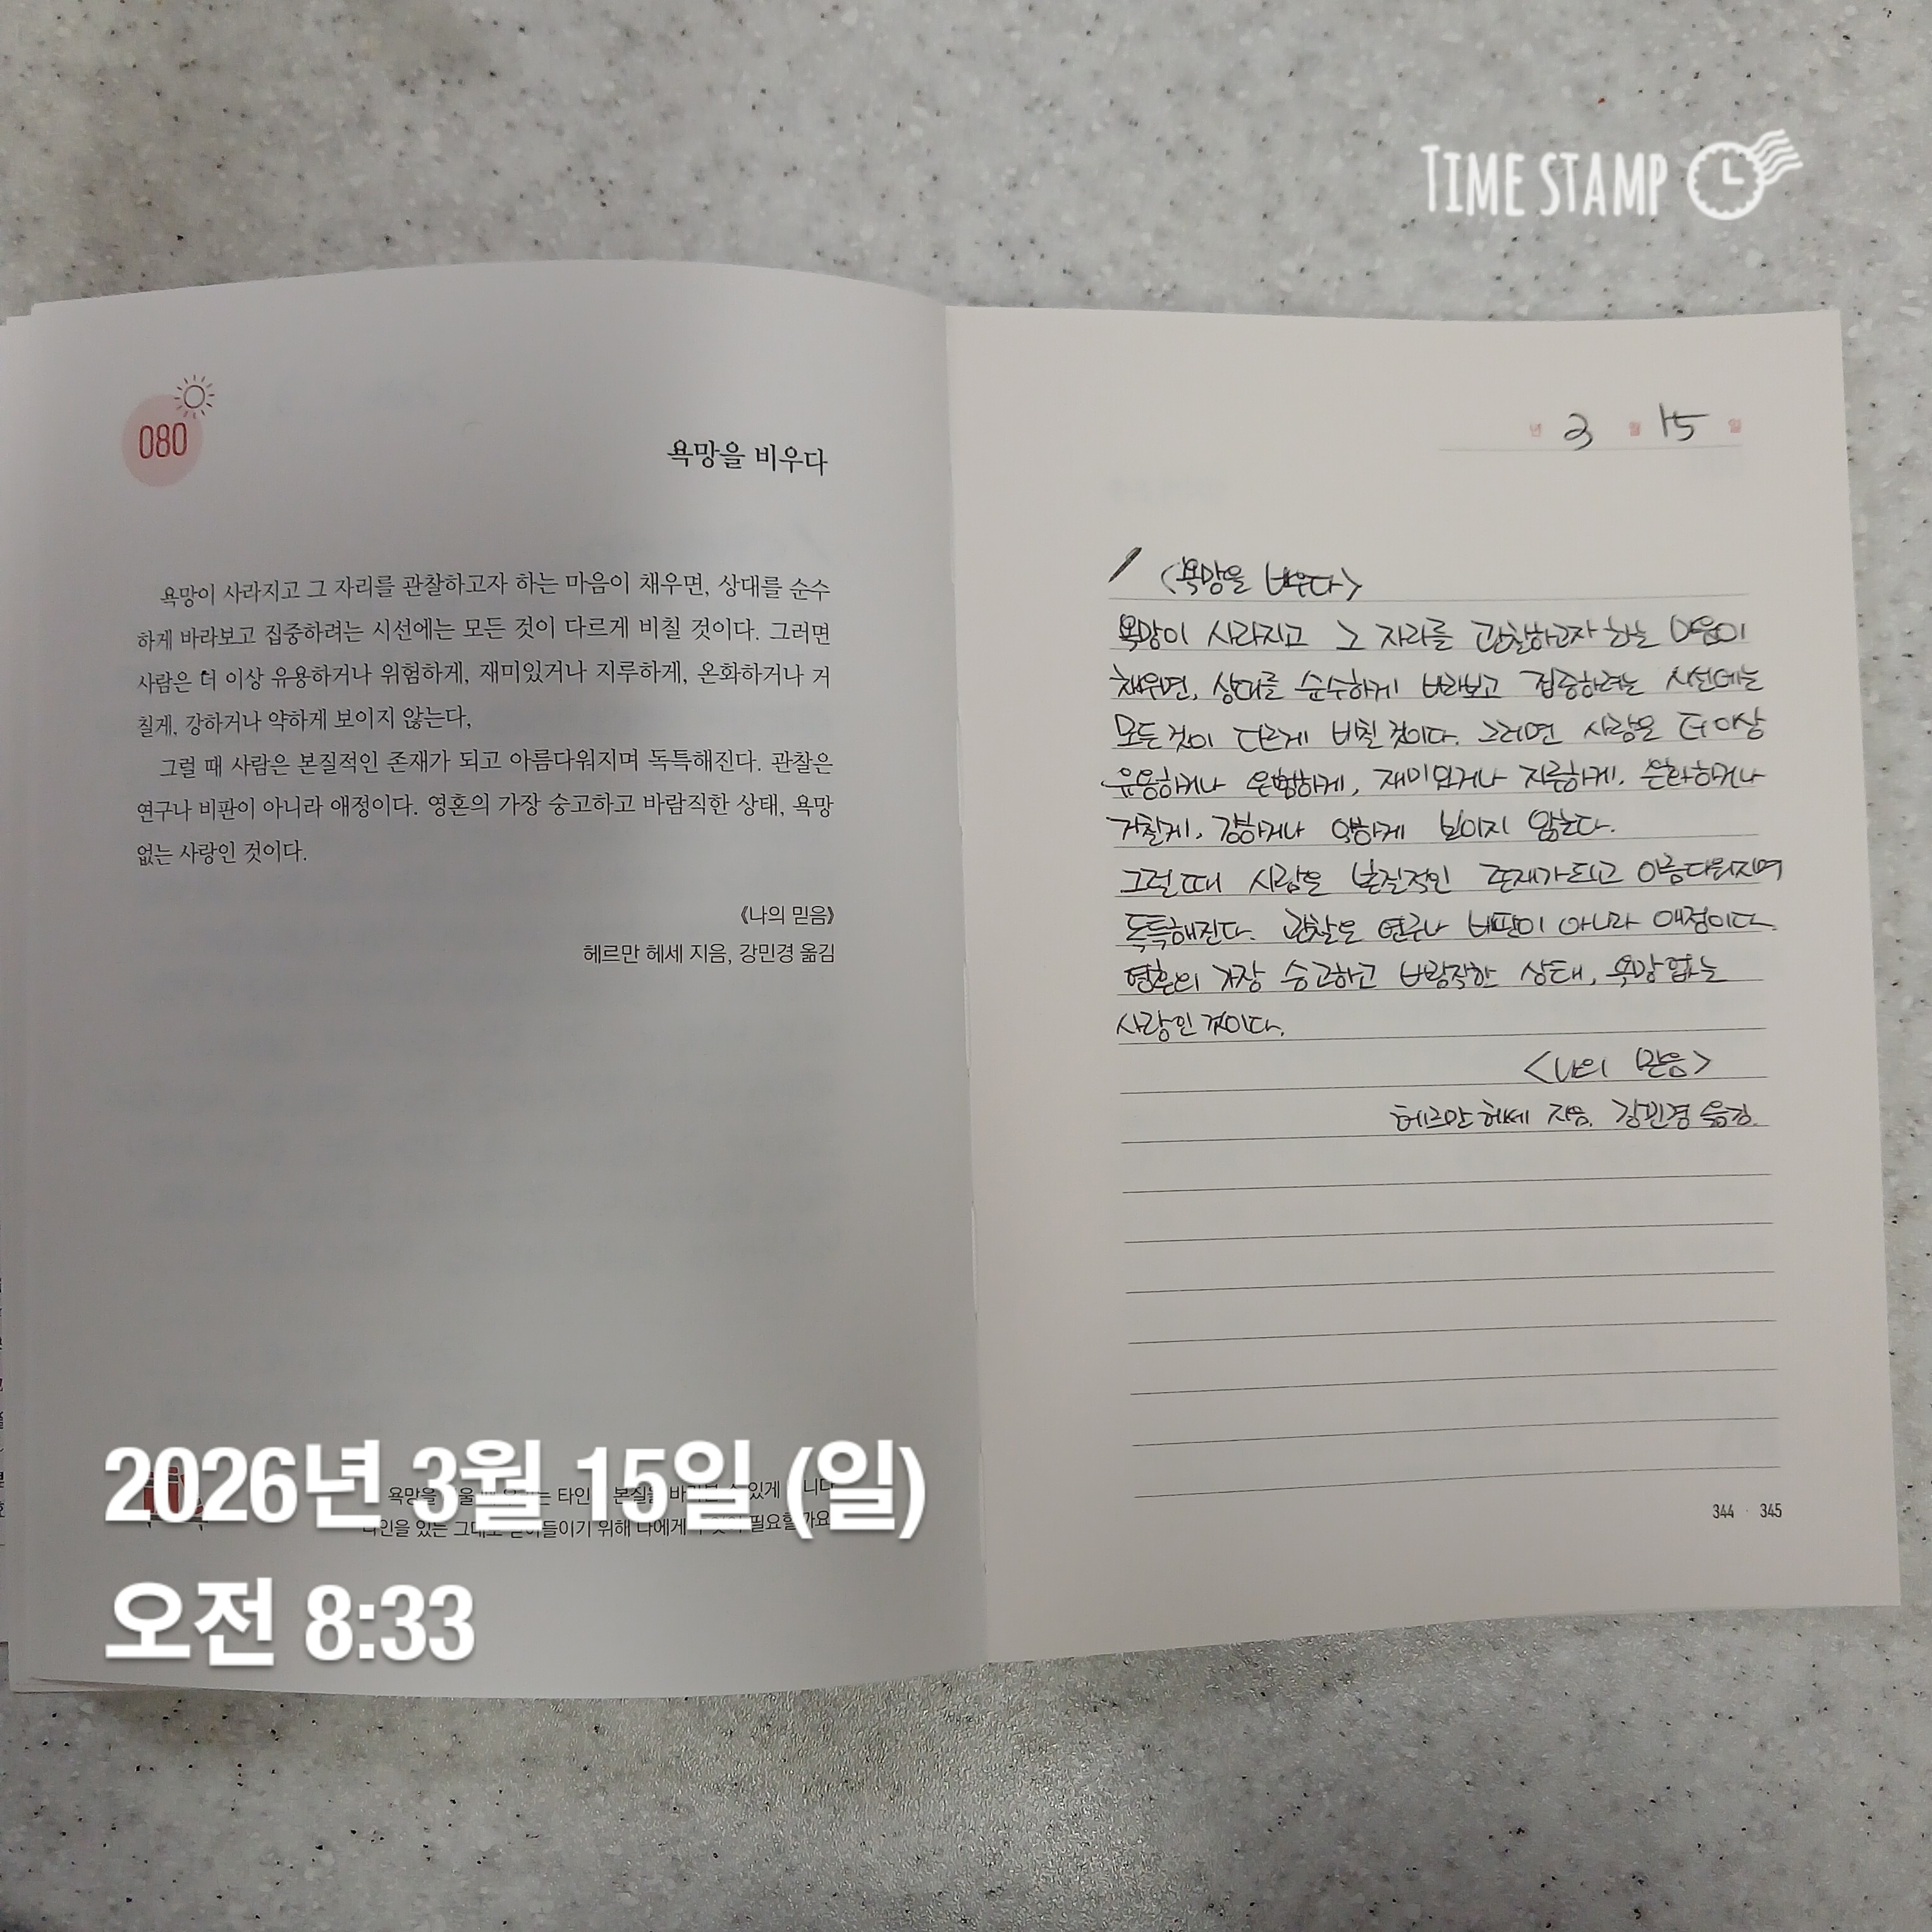 TIME STAMP
080
욕망을 비우다
욕망이 사라지고 그 자리를 관찰하고자 하는 마음이 채우면, 상대를 순수
하게 바라보고 집중하려는 시선에는 모든 것이 다르게 비칠 것이다. 그러면
사람은 더 이상 유용하거나 위험하게, 재미있거나 지루하게, 온화하거나 거
칠게, 강하거나 약하게 보이지 않는다,
그럴 때 사람은 본질적인 존재가 되고 아름다워지며 독특해진다. 관찰은
연구나 비판이 아니라 애정이다. 영혼의 가장 숭고하고 바람직한 상태, 욕망
없는 사랑인 것이다.
《나의 믿음》
헤르만 헤세 지음, 강민경 옮김
욕망을 타인 본질을 있게 니다
있는 위해 나에게 필요할까요
년 3 월 15 일
<욕망을 비우다>
욕망이 사라지고 그 자리를 관찰하고자 하는 마음이
채우면, 상대를 순수하게 바라보고 집중하려는 시선에는
모든 것이 다르게 비칠 것이다. 그러면 사람은 더 이상
유용하거나 위험하게, 재미있거나 지루하게, 온화하거나
거칠게, 강하거나 약하게 보이지 않는다.
그럴 때 사람은 본질적인 존재가 되고 아름다워지며
독특해진다. 관찰은 연구나 비판이 아니라 애정이다.
영혼의 가장 숭고하고 바람직한 상태, 욕망 없는
사랑인 것이다.
<나의 믿음>
헤르만 헤세 지음, 강민경 옮김.
344 · 345
2026년 3월 15일 (일)
오전 8:33